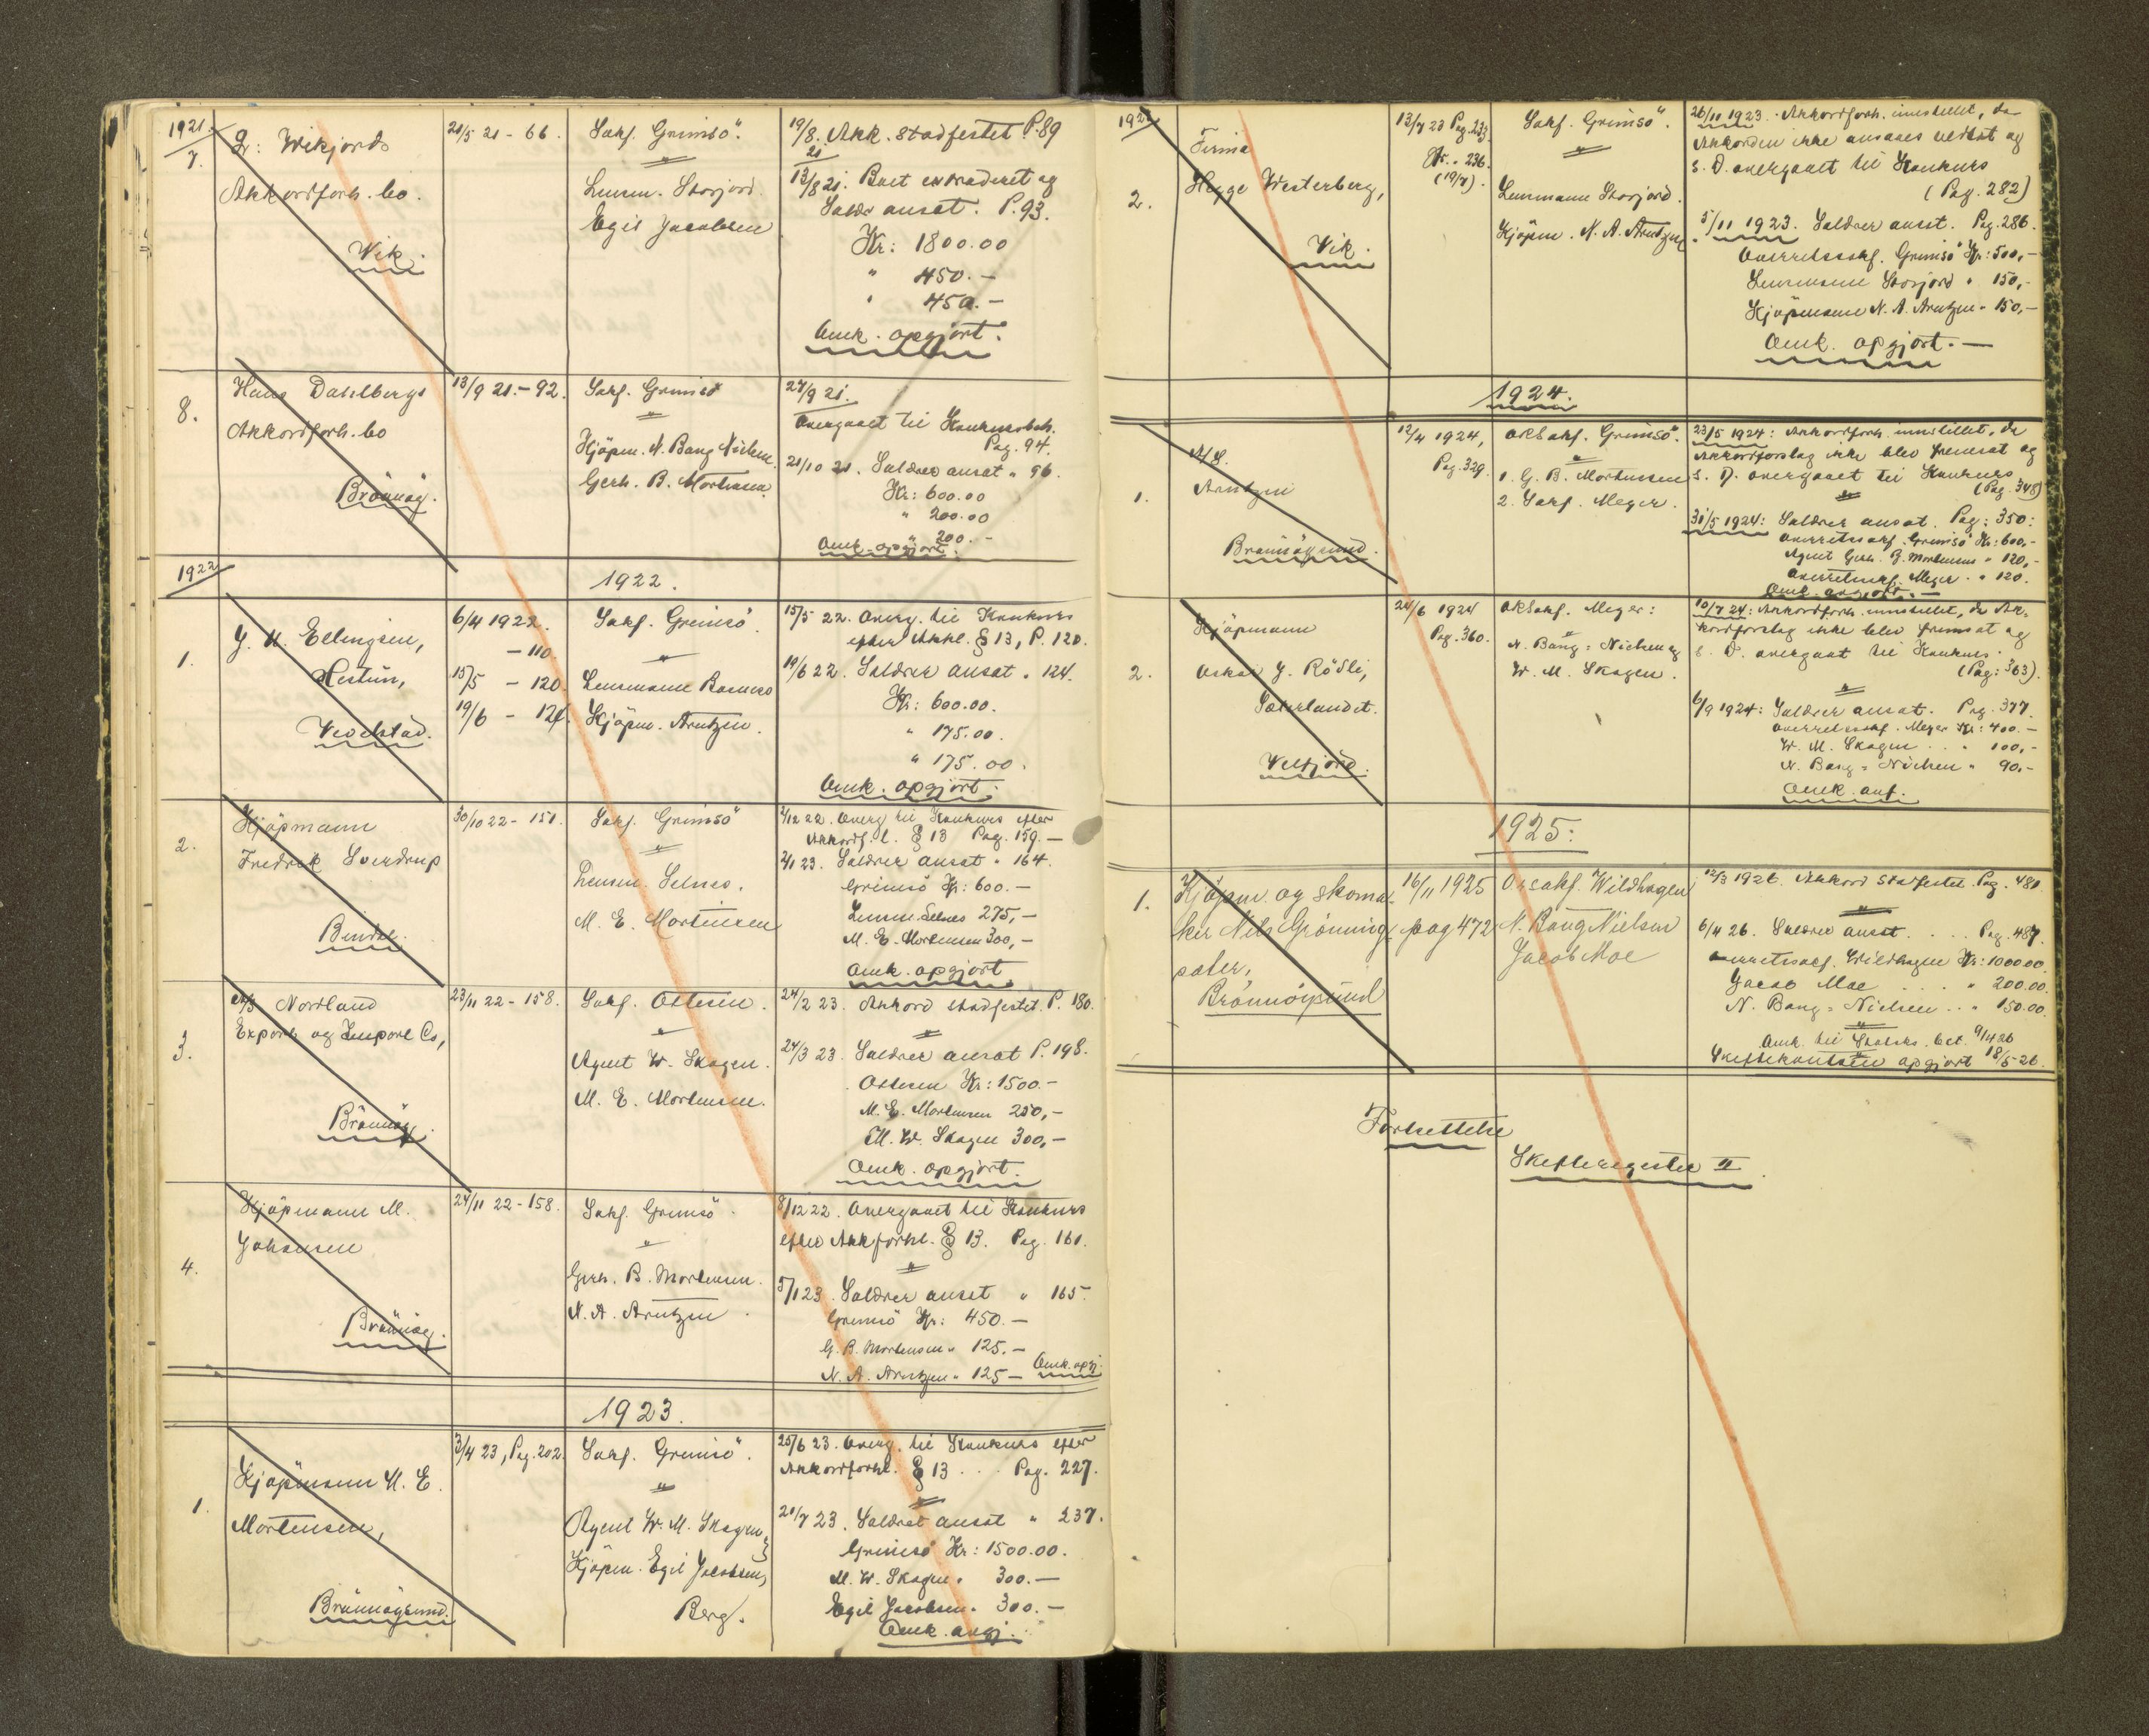 1921.
7.
Gr: Wikjords
Akkordforh. bo.
Vik.
21/5 21 - 66.
Sakf. Grimsö.
"
Lensm. Storjord
Egil Jacobsen
19/8. Akk. stadfestet P. 89
21
13/8 21. Boet extraderet og
Salær ansat. P. 93.
Kr: 1800.00
" 450.-
" 450.-
Omk. opgjort.
8.
Hans Dahlbergs
Akkordforh. bo
Brönnöy.
13/9 21. - 92.
Sakf. Grimsö
"
Kjöpm. N. Bang Nielsen.
Gerh. B. Mortensen.
27/9 21.
Overgaaet til Konkursbeh.
Pag. 94.
21/10 21. Salærer ansat " 96.
Kr: 600.00
" 200.00
" 200.-
Omk. opgjort.
1922
1922.
1.
J. U. Ellingsen,
Hestun,
Vevelstad.
6/4 1922.
- 110.
15/5 - 120.
19/6 - 124.
Sakf. Grimsö.
"
Lensmann Basness
Kjöpm. Arntzen.
15/5 22. Overg. til Konkurs
efter Akkl. § 13, P. 120.
19/6 22. Salærer ansat " 124.
Kr: 600.00.
" 175.00.
" 175.00.
Omk. opgjort.
2.
Kjöpmann
Fredrik Sverdrup
Bindal.
30/10 22 - 151.
Sakf. Grimsö
"
Lensm. Selnes.
M. E. Mortensen
2/12 22. Overg til Konkurs efter
Akkordf. l. § 13 Pag. 159.-
2/1 23. Salærer ansat " 164.
Grimsö Kr: 600.-
Lensm. Selnes 275,-
M. E. Mortensen 300,-
Omk. opgjort
3.
A/S Nordland
Export og Import Co,
Brönnöy.
23/11 22 - 158.
Sakf. Ottesen.
"
Agent W. Skagen.
M. E. Mortensen.
24/2 23. Akkord stadfestet. P. 180.
"
24/3 23. Salærer ansat P. 198.
Ottesen Kr: 1500.-
M. E. Mortensen 250,-
M. W. Skagen 300,-
Omk. opgjort.
4.
Kjöpmann M.
Johansen
Brönnöy.
24/11 22 - 158.
Sakf. Grimsö.
"
Gerh. B. Mortensen.
N. A. Arntzen.
8/12 22. Overgaaet til Konkurs
efter Akkforhl. § 13. Pag. 161.
"
5/1 23. Salærer ansat " 165.
Grimsö Kr: 450.-
G. B. Mortensen " 125.-
N. A. Arntzen " 125 - Omk. opgj.
1923.
1.
Kjöpmann M. E.
Mortensen,
Brönnöysund.
3/4 23, Pag. 202.
Sakf. Grimsö.
"
Agent W. M. Skagen,
Kjöpm. Egil Jacobsen,
Berg.
25/6 23. Overg. til Konkurs efter
Akkordforhl. § 13 . . Pag. 227.
"
20/7 23. Salæret ansat " 237.
Grimsö Kr: 1500.00.
M. W. Skagen " 300.-
Egil Jacobsen " 300.-
Omk. opgj.
1923
2.
Firma
Hegge Westerberg,
Vik.
13/7 23 Pag. 233.
Kr. 236.
(19/7).
Sakf. Grimsö.
"
Lensmann Storjord.
Kjöpm. N. A. Arntzen
26/11 1923. Akkordforh. innstillet, da
Akkorden ikke ansaaes vedtat og
s. D. overgaaet til Konkurs
(Pag. 282)
5/11 1923. Salærer ansat. Pag. 286.
Overretssakf. Grimsö Kr: 500,-
Lensmann Storjord " 150,-
Kjöpmann N. A. Arntzen " 150,-
Omk. opgjort.-
1924.
1.
A/S.
Arntzen
Brönnöysund.
12/4 1924,
Pag. 329.
ORSakf. Grimsö.
"
1. G. B. Mortensen
2. Sakf. Meyer.
23/5 1924: Akkordforh. innstillet, da
Akkordforslag ikke blev fremsat og
s. D. overgaaet til Konkurs
(Pag. 348)
"
31/5 1924: Salærer ansat. Pag: 350:
Overretssakf. Grimsö Kr: 600,-
Agent Gerh. B. Mortensen " 120,-
Overretssakf. Meyer " 120.
Omk. opgjort.-
2.
Kjöpmann
Oskar J. Rödli,
Sæterlandet.
Velfjord.
24/6 1924
Pag. 360.
ORSakf. Meyer:
"
N. Bang=Nielsen og
W. M. Skagen.
10/7 24: Akkordforh. innstillet, da Ak-
kordforslag ikke blev fremsat og
s. D. overgaat til Konkurs.
(Pag: 363).
"
6/9 1924: Salærer ansat. Pag. 377.
Overretssakf. Meyer Kr: 400.-
W. M. Skagen . . " 100,-
N. Bang=Nielsen " 90,-
Omk. anf.
1925:
1.
Kjöpm. og skoma-
ker Nils Grönnings
sæter,
Brönnöysund
16/11 1925
pag 472
Orsakf. Wildhagen
N. Bang Nielsen
Jacob Moe
12/3 1926. Akkord stadfestet Pag. 481.
"
6/4 26. Salærer ansat . . . Pag. 487.
Overretssakf. Wildhagen Kr: 1000.00.
Jacob Moe . . . " 200.00.
N. Bang=Nielsen . . " 150.00.
"
Omk. til Statsks. bet. 9/4 26
Skiftekontoen opgjort 18/5-26.
Fortsettelse
Skifteregister II.